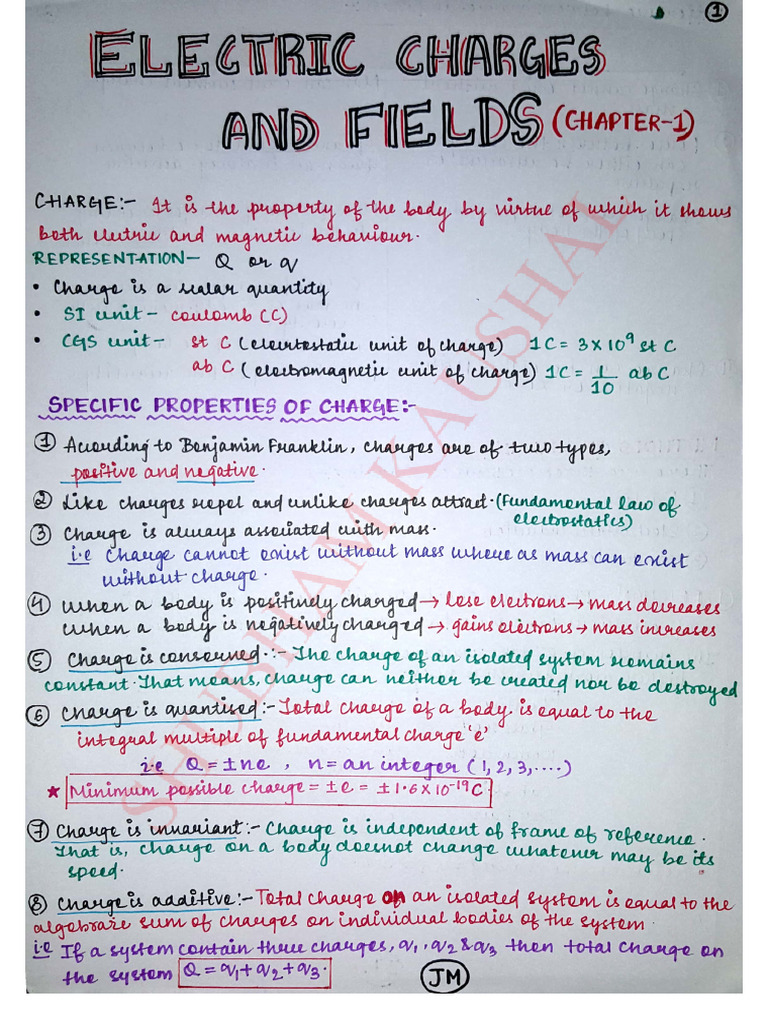 1
ELECTRIC CHARGES
AND FIELDS (CHAPTER-1)
CHARGE:- It is the property of the body by virtue of which it shows
both electric and magnetic behaviour.
REPRESENTATION- Q or q
• Charge is a scalar quantity
• SI unit - coulomb (C)
• CGS unit - st C (electrostatic unit of charge) 1C = 3×10⁹ st C
ab C (electromagnetic unit of charge) 1C = 1/10 ab C
SPECIFIC PROPERTIES OF CHARGE:-
① According to Benjamin Franklin, charges are of two types,
positive and negative.
② Like charges repel and unlike charges attract. (Fundamental law of
electrostatics)
③ Charge is always associated with mass.
i.e Charge cannot exist without mass where as mass can exist
without charge.
④ When a body is positively charged → lose electrons → mass decreases
When a body is negatively charged → gains electrons → mass increases
⑤ Charge is conserved.:- The charge of an isolated system remains
constant. That means, charge can neither be created nor be destroyed
⑥ Charge is quantised:- Total charge of a body is equal to the
integral multiple of fundamental charge 'e'
i.e Q = ±ne , n = an integer (1, 2, 3, ....)
★ Minimum possible charge = ±e = ±1.6×10⁻¹⁹C
⑦ Charge is invariant:- Charge is independent of frame of reference.
That is, charge on a body doesnot change whatever may be its
speed.
⑧ Charge is additive:- Total charge on an isolated system is equal to the
algebraic sum of charges on individual bodies of the system.
i.e If a system contain three charges, q₁, q₂ & q₃ then total charge on
the system Q = q₁ + q₂ + q₃.
JM
SHUBHAM KAUSHAL